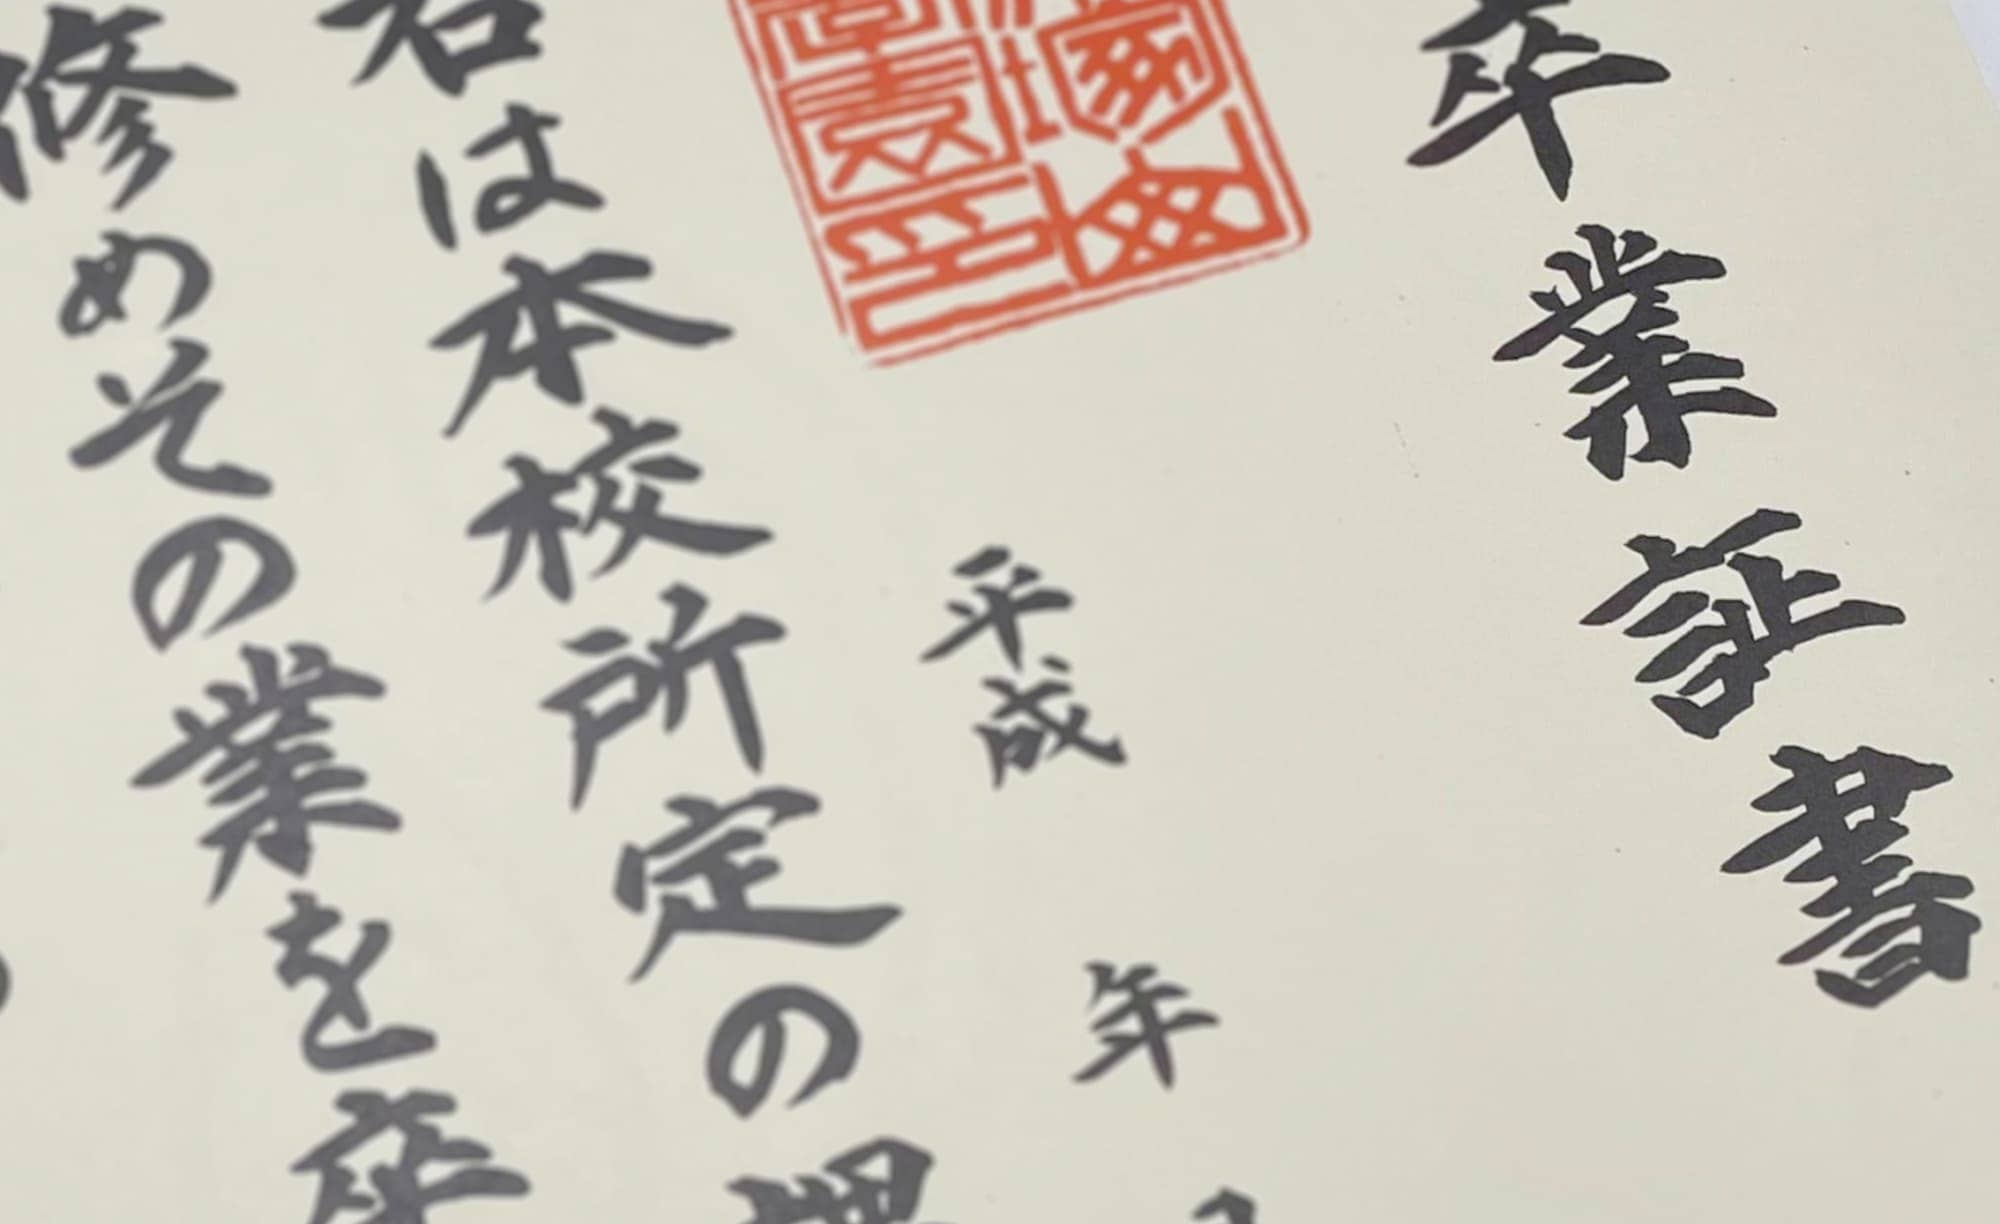 卒業証書
平成　年
右は本校所定の課
修めその業を卒